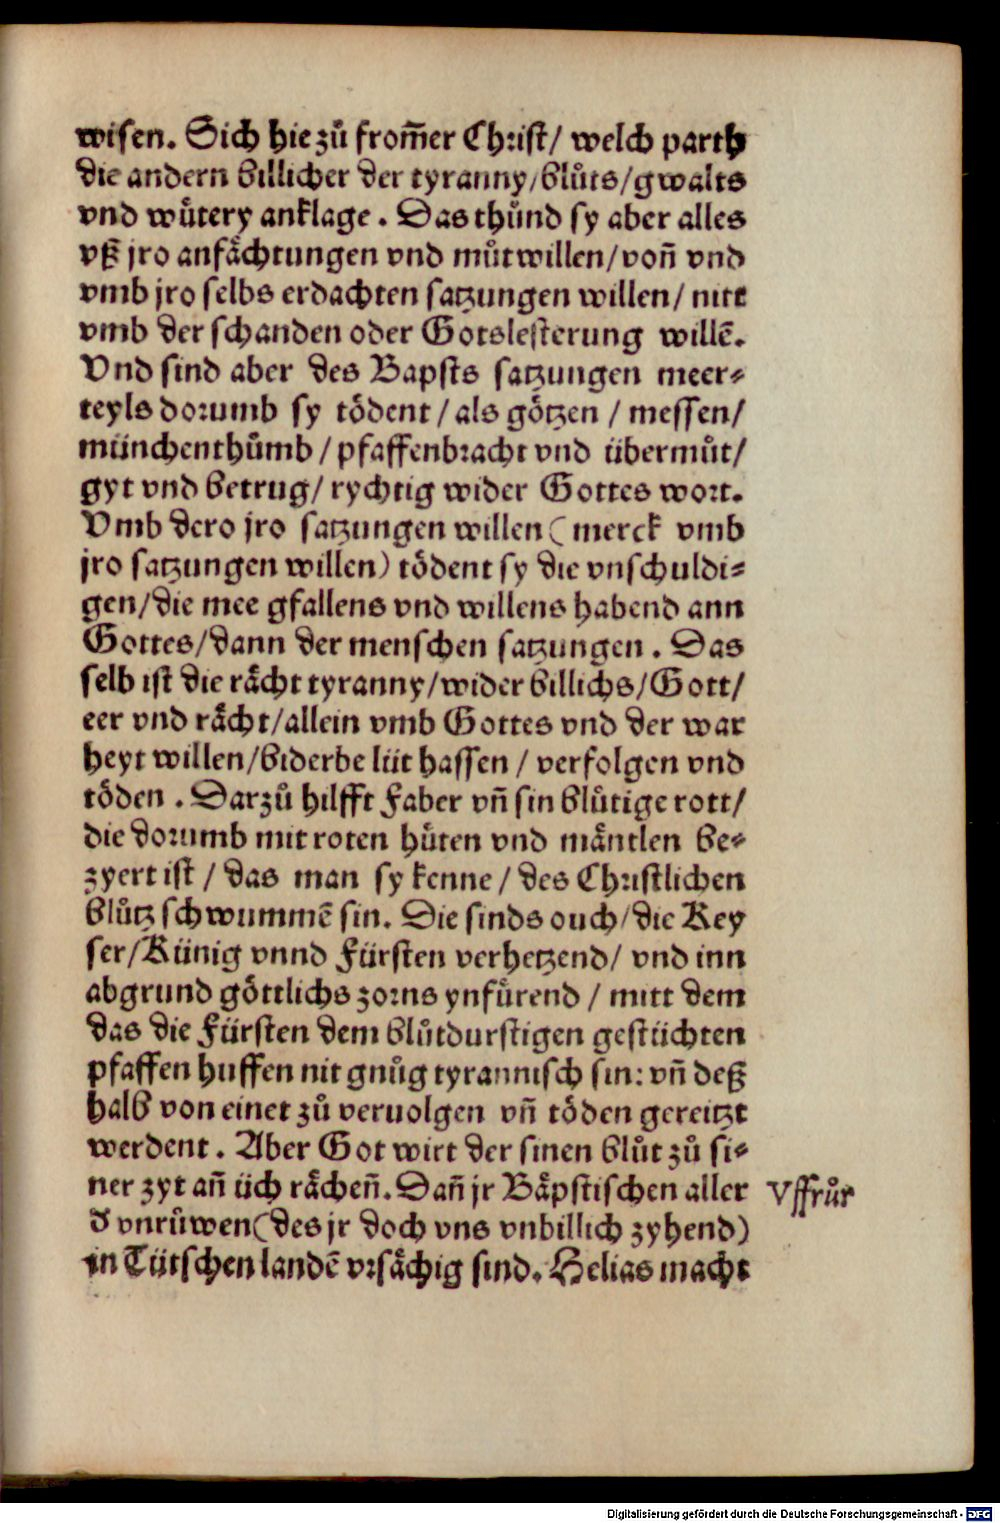 wisen. Sich hie zů from̄er Christ/ welch parth
die andern billicher der tyranny/blůts/gwalts
vnd wůtery anklage. Das thůnd sy aber alles
vß jro anfåchtungen vnd můtwillen/von̄ vnd
vmb jro selbs erdachten satzungen willen/ nitt
vmb der schanden oder Gotslesterung willē.
Vnd sind aber des Bapsts satzungen meer⸗
teyls dorumb sy tödent/als götzen/ messen/
münchenthůmb/pfaffenbracht vnd übermůt/
gyt vnd betrug/ rychtig wider Gottes wort.
Vmb dero jro satzungen willen (merck vmb
jro satzungen willen) tödent sy die vnschuldi⸗
gen/die mee gfallens vnd willens habend ann
Gottes/dann der menschen satzungen. Das
selb ist die råcht tyranny/wider billichs/Gott/
eer vnd råcht/allein vmb Gottes vnd der war
heyt willen/biderbe lüt hassen/ verfolgen vnd
töden. Darzů hilfft Faber vn̄ sin blůtige rott/
die dorumb mit roten hůten vnd måntlen be⸗
zyert ist/ das man sy kenne/ des Christlichen
blůtz schwummē sin. Die sinds ouch/die Key
ser/Künig vnnd Fürsten verhetzend/ vnd inn
abgrund göttlichs zorns ynfůrend/ mitt dem
das die Fürsten dem blůtdurstigen gestüchten
pfaffen huffen nit gnůg tyrannisch sin: vn̄ deß
halb von einet zů veruolgen vn̄ töden gereitzt
werdent. Aber Got wirt der sinen blůt zů si⸗
ner zyt an̄ üch råchen̄. Dan̄ jr Båpstischen aller
d vnrůwen (des jr doch vns vnbillich zyhend)
in Tütschen landē vrsåchig sind. Helias macht
Vffrůr
Digitalisierung gefördert durch die Deutsche Forschungsgemeinschaft - DFG